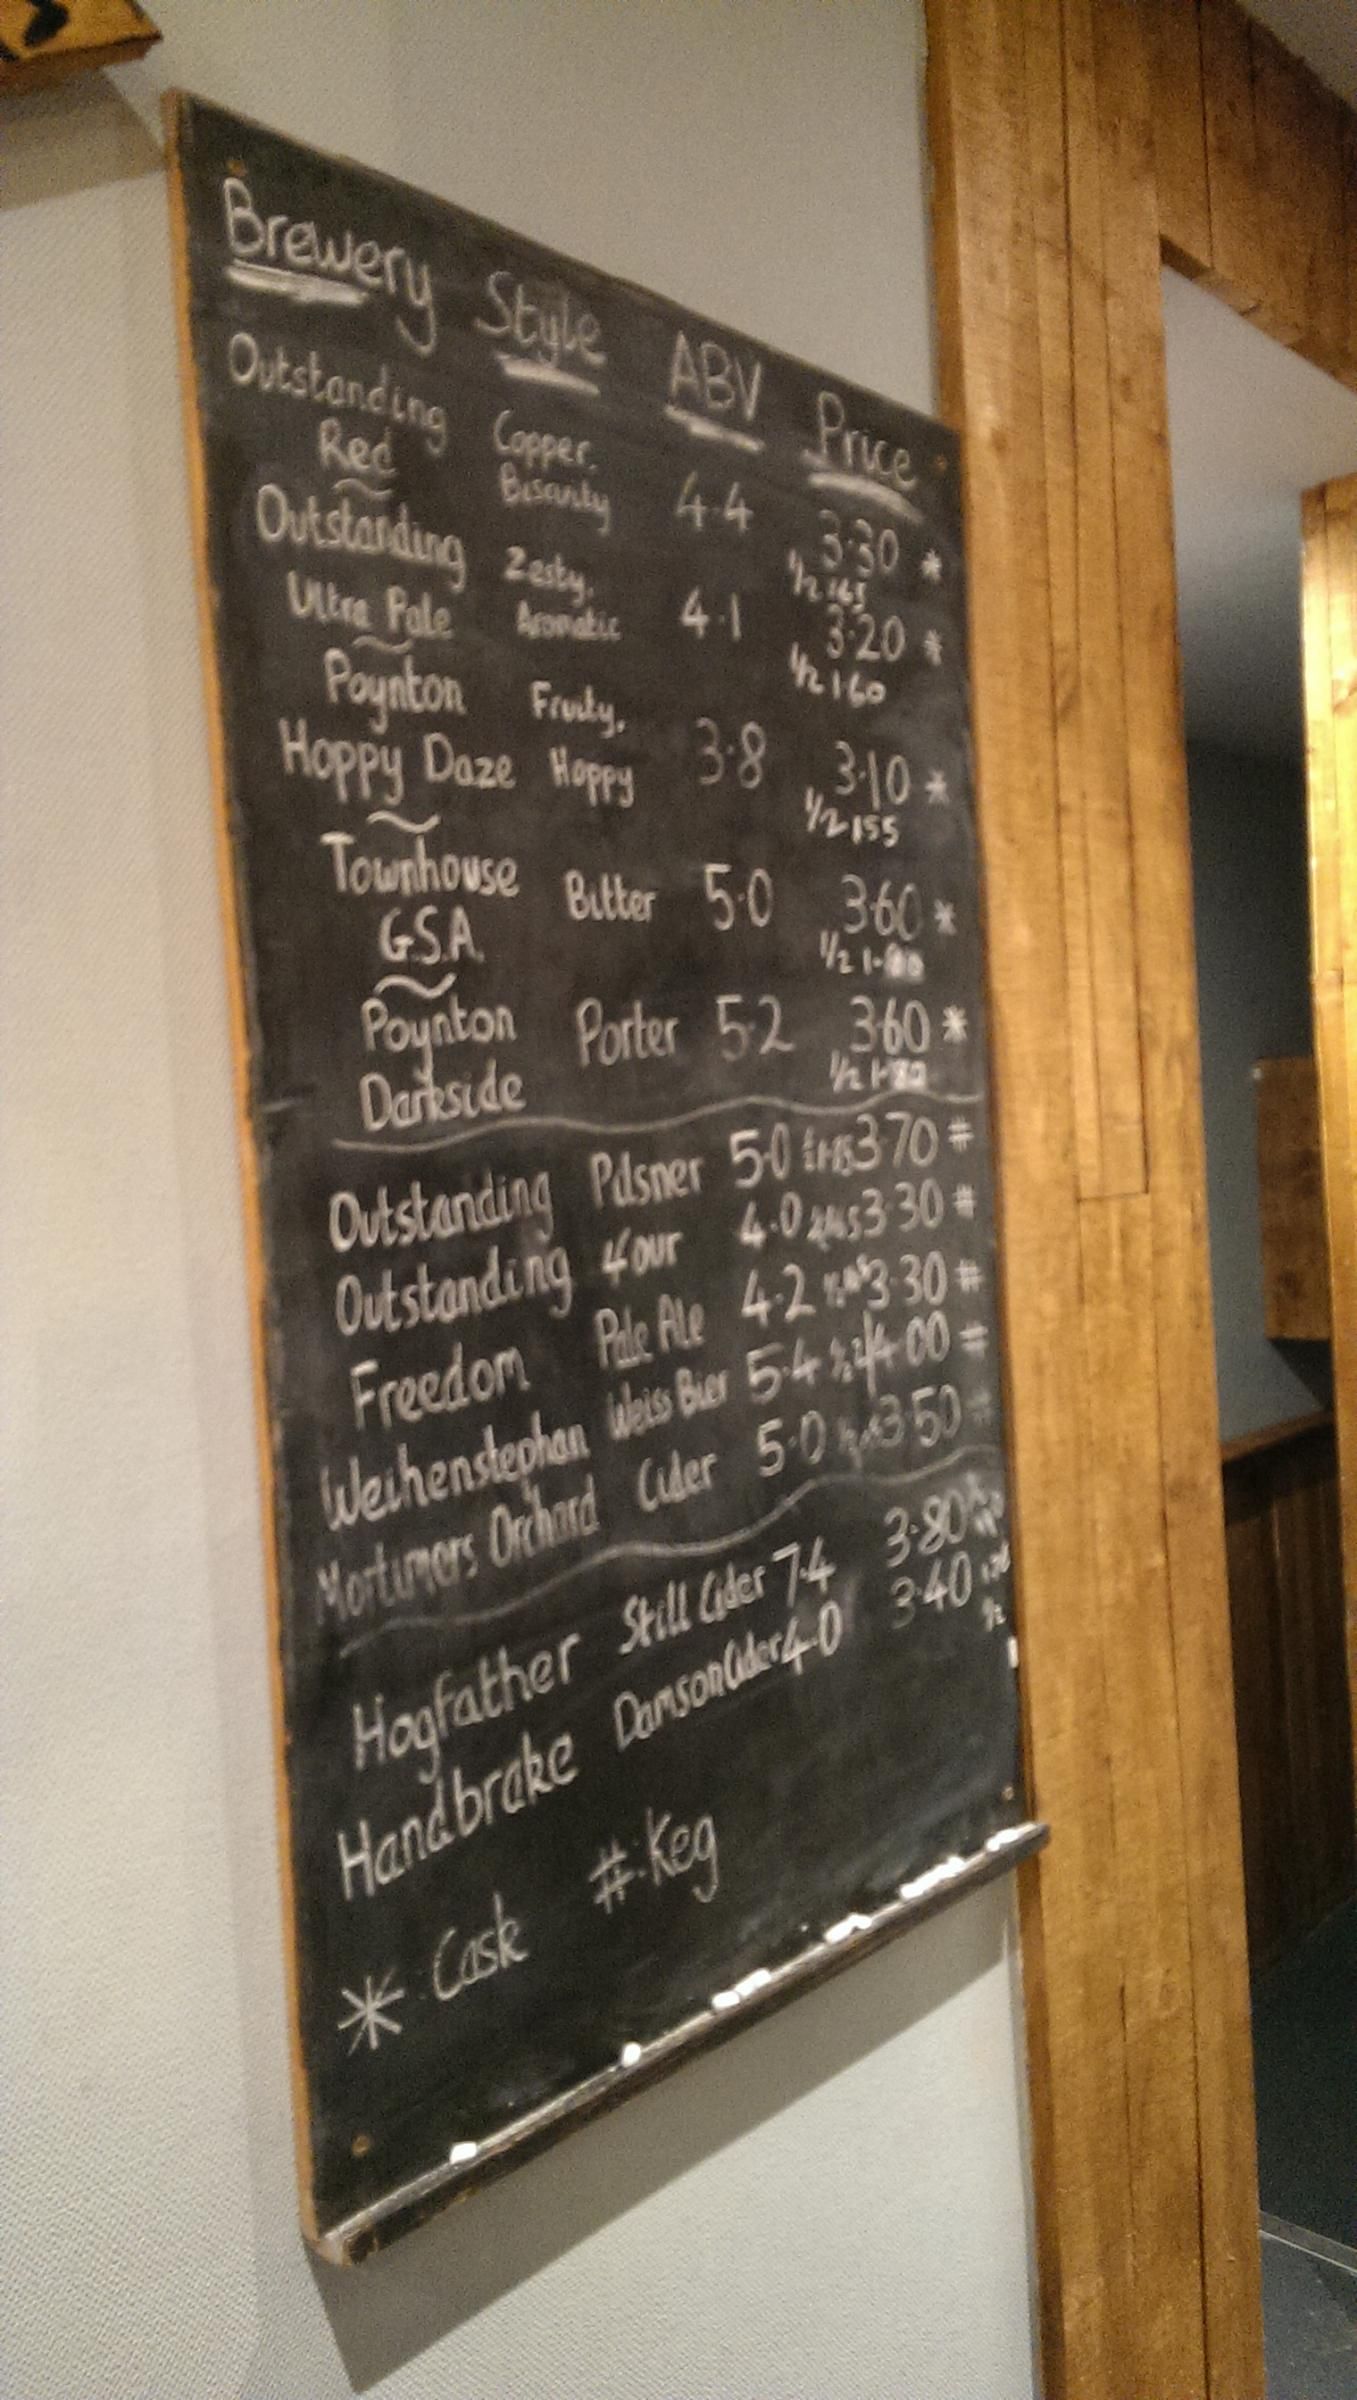 Brewery Style ABV Price
Outstanding Copper,
Red Biscuity 4.4 3.30 *
1/2 1.65
Outstanding Zesty,
Ultra Pale Aromatic 4.1 3.20 *
1/2 1.60
Poynton Fruity,
Hoppy Daze Hoppy 3.8 3.10 *
1/2 1.55
Townhouse Bitter 5.0 3.60 *
G.S.A. 1/2 1.80
Poynton Porter 5.2 3.60 *
Darkside 1/2 1.80
Outstanding Pilsner 5.0 1/2 1.85 3.70 #
Outstanding 4our 4.0 3.30 #
Freedom Pale Ale 4.2 3.30 #
Weihenstephan Weiss Bier 5.4 1/2 2/4.00 #
Mortimers Orchard Cider 5.0 3.50 #
Hogfather Still Cider 7.4 3.80
Handbrake Damson Cider 4.0 3.40 1.70
1/2
* : Cask #: Keg